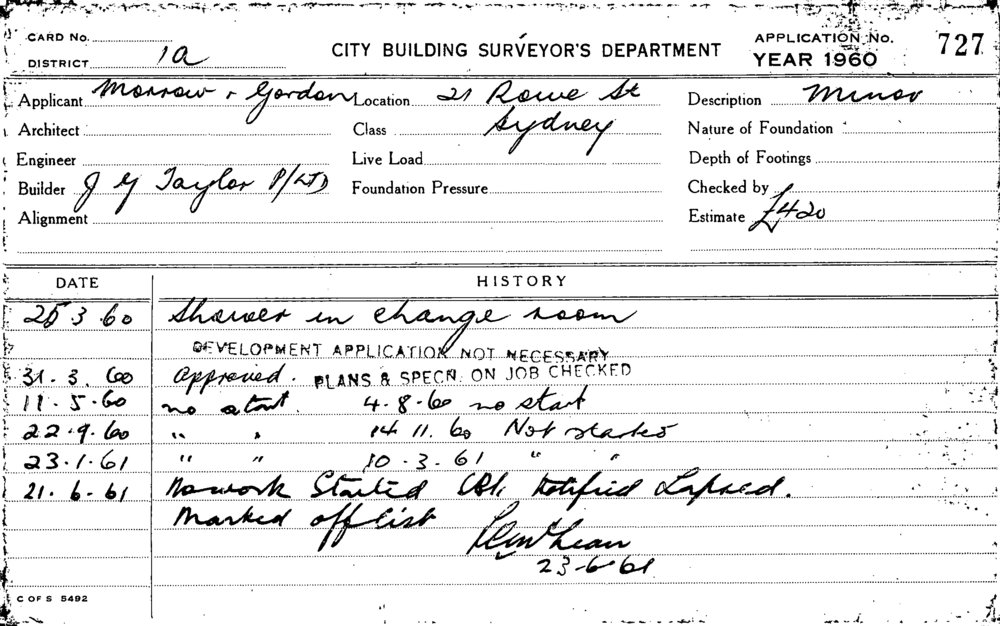 CARD No. APPLICATION No. 727
DISTRICT 1a CITY BUILDING SURVEYOR'S DEPARTMENT YEAR 1960
Applicant Morrow & Gordon Location 21 Rowe St Description Minor
Architect Class Sydney Nature of Foundation
Engineer Live Load Depth of Footings
Builder J G Taylor P/LTD Foundation Pressure Checked by
Alignment Estimate £420
DATE HISTORY
25 3 60 Shower in change room
DEVELOPMENT APPLICATION NOT NECESSARY
31. 3. 60 Approved. PLANS & SPECN. ON JOB CHECKED
11. 5. 60 no start. 4. 8. 60 no start
22. 9. 60 " " 14 11. 60 Not started
23. 1. 61 " " 10. 3. 61 " "
21. 6. 61 No work Started notified Lapsed.
Marked off list
23-6-61
C OF S 5492